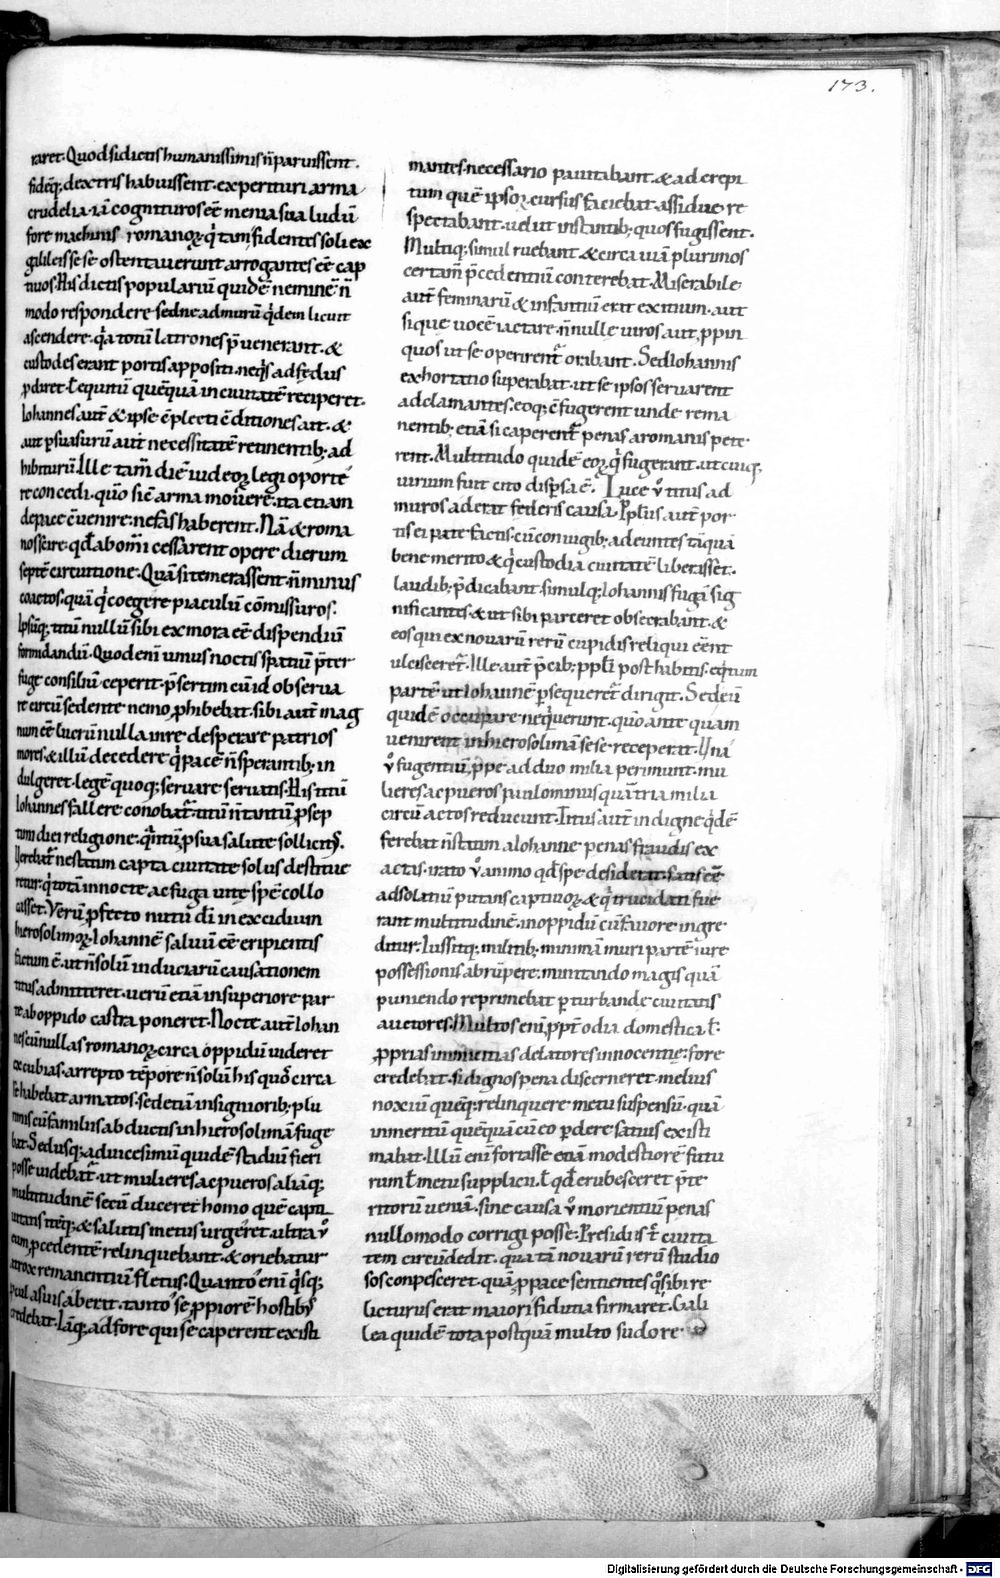 173.
raret. Quod si dictis humanissimis n̄ paruissent.
fidēq; dextris habuissent. experituri arma
crudelia. iā cognituros eē menia sua ludū
fore machinis romanoꝝ. q̇ tam fidentes soli ex
galileis se se ostentauerunt arrogantes eē cap
tiuos. His dictis popularium quidē neminē n̄
modo respondere. sed ne ad murū q̇dem licuit
ascendere. q̇a totū latrones p̄uenerant. &
custodes erant portis appositi. neq̇s ad fedus
ꝓdiret. ł equitū quēquā in ciuitatē reciperet.
Iohannes aut̄ & ipse ēplecti ēditiones ait. &
aut psuasurū aut necessitatē retinentib; ad
hibiturū. Ille tam̄ diē iudeoꝝ legi oportē
re concedi. quo sic̄ arma mouere. ita etiam
de pace cūenire. nefas haberent. Nā & roma
nos scire. qđ ab om̄i cessarent opere dierum
septē circuitione. Quā si temerassent. n̄ minus
coactos. quā q̇ coegere piaculū cōmissuros.
Ipsūq; titū nullū sibi ex mora eē dispendiū
formidandū. Quod enī unius noctis spatiū p̄ter
fuge consiliū ceperit. p̄sertim cū id obserua
re circū sedente nemo ꝓhibebat. sibi aut̄ mag
num eē lucrū nulla in re desperare patrios
mores. & illū decedere q̇ pacē n̄ sperantib; in
dulgeret. legē quoq; seruare seruatis. His titū
Iohannes fallere conabat᷑. titū n̄ tantū ꝓ sep
tim diei religione. q̇ntū ꝓ sua salute sollicit᷒.
Verebat᷑ ne statim capta ciuitate solus destitue
retur. q̇ totā in nocte ac fuga uite spē collo
casset. Verū ꝓfecto nutu dī in excidium
hierosolimoꝝ. Iohannē saluū eē eripientis
factum ē. ut n̄ solū induciarū causationem
titus admitteret. uerū etiā in superiore par
te ab oppido castra poneret. Nocte aut̄ Iohan
nes cū nullas romanoꝝ circa oppidū uideret
excubias. arrepto tēpore n̄ solū his quos circa
se habebat armatos. sed etiā insignioribꝰ plu
rimis cū familiis abductis in hierosolimā fuge
bat. Sed usq; ad uicesimū quidē stadiū fieri
posse uidebat᷑. ut mulieres ac pueros aliāq;
multitudinē secū duceret homo quē capti
uitatis iteq; & salutis metus urgeret. ultra ů
eum ꝓcedentē relinquebant. & oriebatur
atrox remanentiū fletus. Quanto enī q̇sq;
ꝓcul a suis aberat. tanto se ꝓpiorē hostib᷒
credebat. Iāq; ad fore qui se caperent existi
mantes. necessario pauitabant. & ad crepi
tum quē ipsoꝝ cursus faciebat. assidue re
spectabant. uelut instantib; quos fugissent.
Multiq; simul ruebant. & circa uiā plurimos
certam̄ p̄cedentiū conterebat. Miserabile
aut̄ feminarū & infantiū erat exitium. aut
sique uocē iactare. n̄nulle uiros aut ꝓpin
quos ut se operirent᷑ orabant. Sed Iohannis
exhortatio superabat. ut se ipsos seruarent
adclamantes. eoq; c̄fugerent unde rema
nentib; etiā si caperent᷑ penas a romanis pete
rent. Multitudo quidē eoꝝ q̇ fugerant. ut cuiq;
uirium fuit cito dispersa ē. Luce ů titus ad
muros aderat federis causa. Pplus aut̄ por
tis ei pate factis. cū coniugib; adeuntes tāquā
bene merito & q̇ custodia ciuitatē liberasset.
laudib; p̄dicabant. simulq; Iohannis fugā sig
nificantes. & ut sibi parceret obsecrabant. &
eos qui ex nouarū rerū cupidis reliqui eēnt
ulcisceret᷑. Ille aut̄ p̄cib; ppłi post habitis. eqitum
partē ut Iohannē psequeret᷑ dirigit. Sed eū
quidē occupare nequiuerunt. quo ante quam
uenirent in hierosolimā se se receperat. Una
ů fugentiū ꝓpe ad duo milia perimunt. mu
lieres ac pueros paulominus quā tria milia
circū actos reducunt. Titus aut̄ indigne q̇dē
ferebat n̄ statim a Iohanne penas fraudis ex
actas. irato ů animo qđ spe desiderat. satis eē
ad solatiū putans captiuoꝝ. & q̇ trucidati fue
rant multitudinē. in oppidū cū fauore ingre
ditur. Iussitq; militib; minimā muri partē iure
possessionis abrūpere. minitando magis quā
puniendo reprimebat perturbande ciuitatis
auctores. Multos enī ꝓpt̄ odia domestica ł
ꝓprias inimicitias delatores innocentie. fore
credebat. si dignos pena discerneret. melius
noxiū quēq; relinquere metu suspensū. quā
inmeritū quēquā cū eo perdere satius existi
mabat. Illū enī fortasse etiā modestiorē futu
rum ł metu supplicii. ł qđ erubesceret p̄te
ritorū ueniā. sine causa ů morientiū penas
nullo modo corrigi posse. Presidiis t̄ ciuita
tem circūdedit. qua tā nouarū rerū studio
sos conpesceret. quā ꝓ pace sentientes qͦs ibi re
licturus erat maiori fiducia firmaret. Gali
lea quidē tota postquā multo sudore
Digitalisierung gefördert durch die Deutsche Forschungsgemeinschaft - DFG